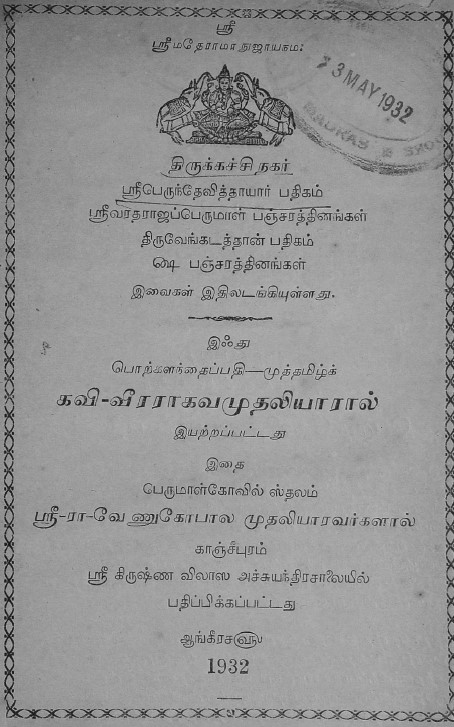 ஸ்ரீ
ஸ்ரீமதேராமாநுஜாயநம:
23 MAY 1932
MADRAS
திருக்கச்சிநகர்
ஸ்ரீபெருந்தேவித்தாயார் பதிகம்
ஸ்ரீவரதராஜப்பெருமாள் பஞ்சரத்தினங்கள்
திருவேங்கடத்தான் பதிகம்
ஷை பஞ்சரத்தினங்கள்
இவைகள் இதிலடங்கியுள்ளது.
இஃது
பொற்களந்தைப்பதி—முத்தமிழ்க்
கவி-வீரராகவமுதலியாரால்
இயற்றப்பட்டது
இதை
பெருமாள்கோவில் ஸ்தலம்
ஸ்ரீ-ரா-வேணுகோபால முதலியாரவர்களால்
காஞ்சீபுரம்
ஸ்ரீ கிருஷ்ண விலாஸ அச்சுயந்திரசாலையில்
பதிப்பிக்கப்பட்டது
ஆங்கீரச௵
1932